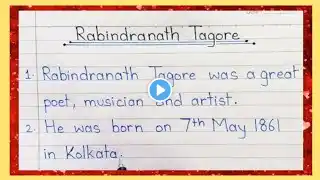 Rabindranath Tagore
1. Rabindranath Tagore was a great
poet, musician and artist.
2. He was born on 7th May 1861
in Kolkata.